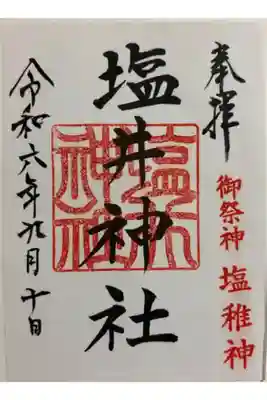 奉拝
御祭神 塩稚神
塩井神社
令和六年九月十日